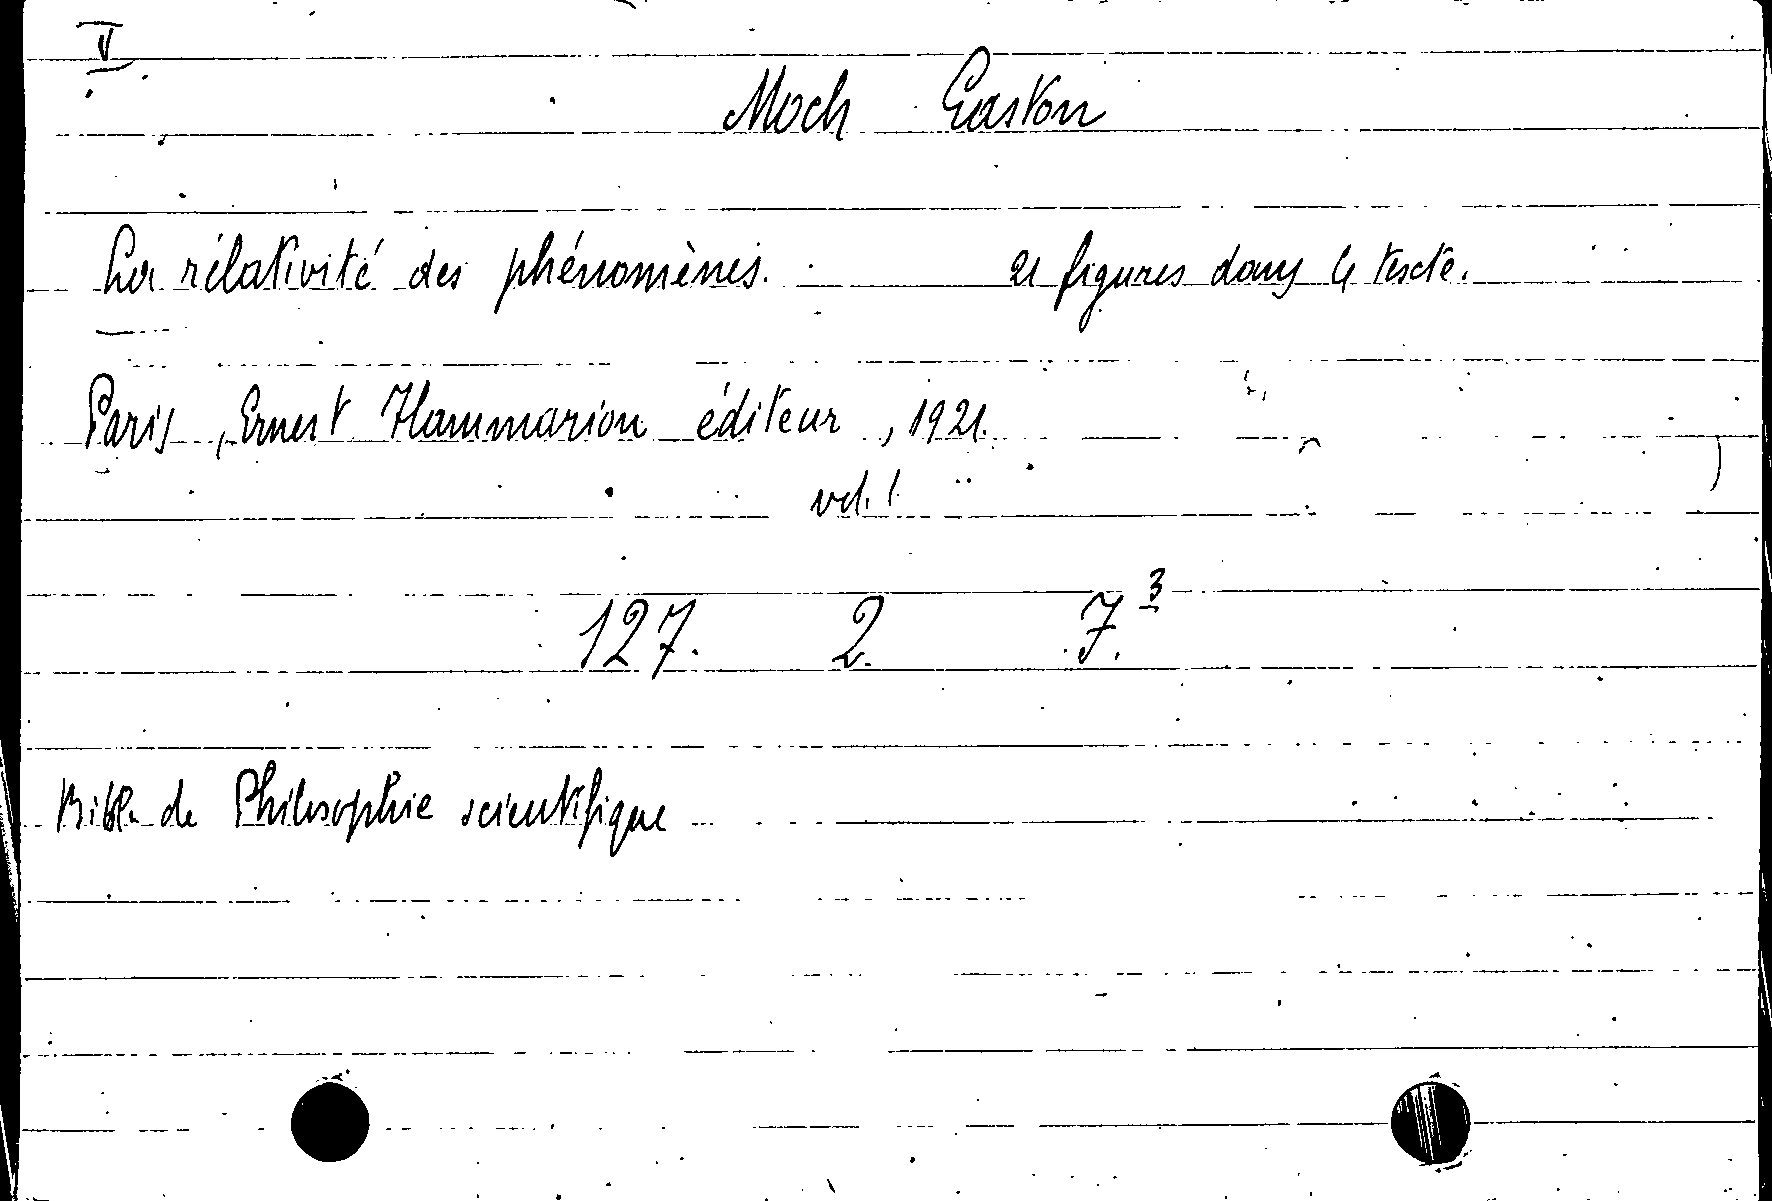 V
Moch Gaston
La rélativité des phénomènes. 21 figures dans le texte.
Paris, Ernest Flammarion éditeur, 1921.
vol. 1
127. 2. 7.³
Bibl. de Philosophie scientifique